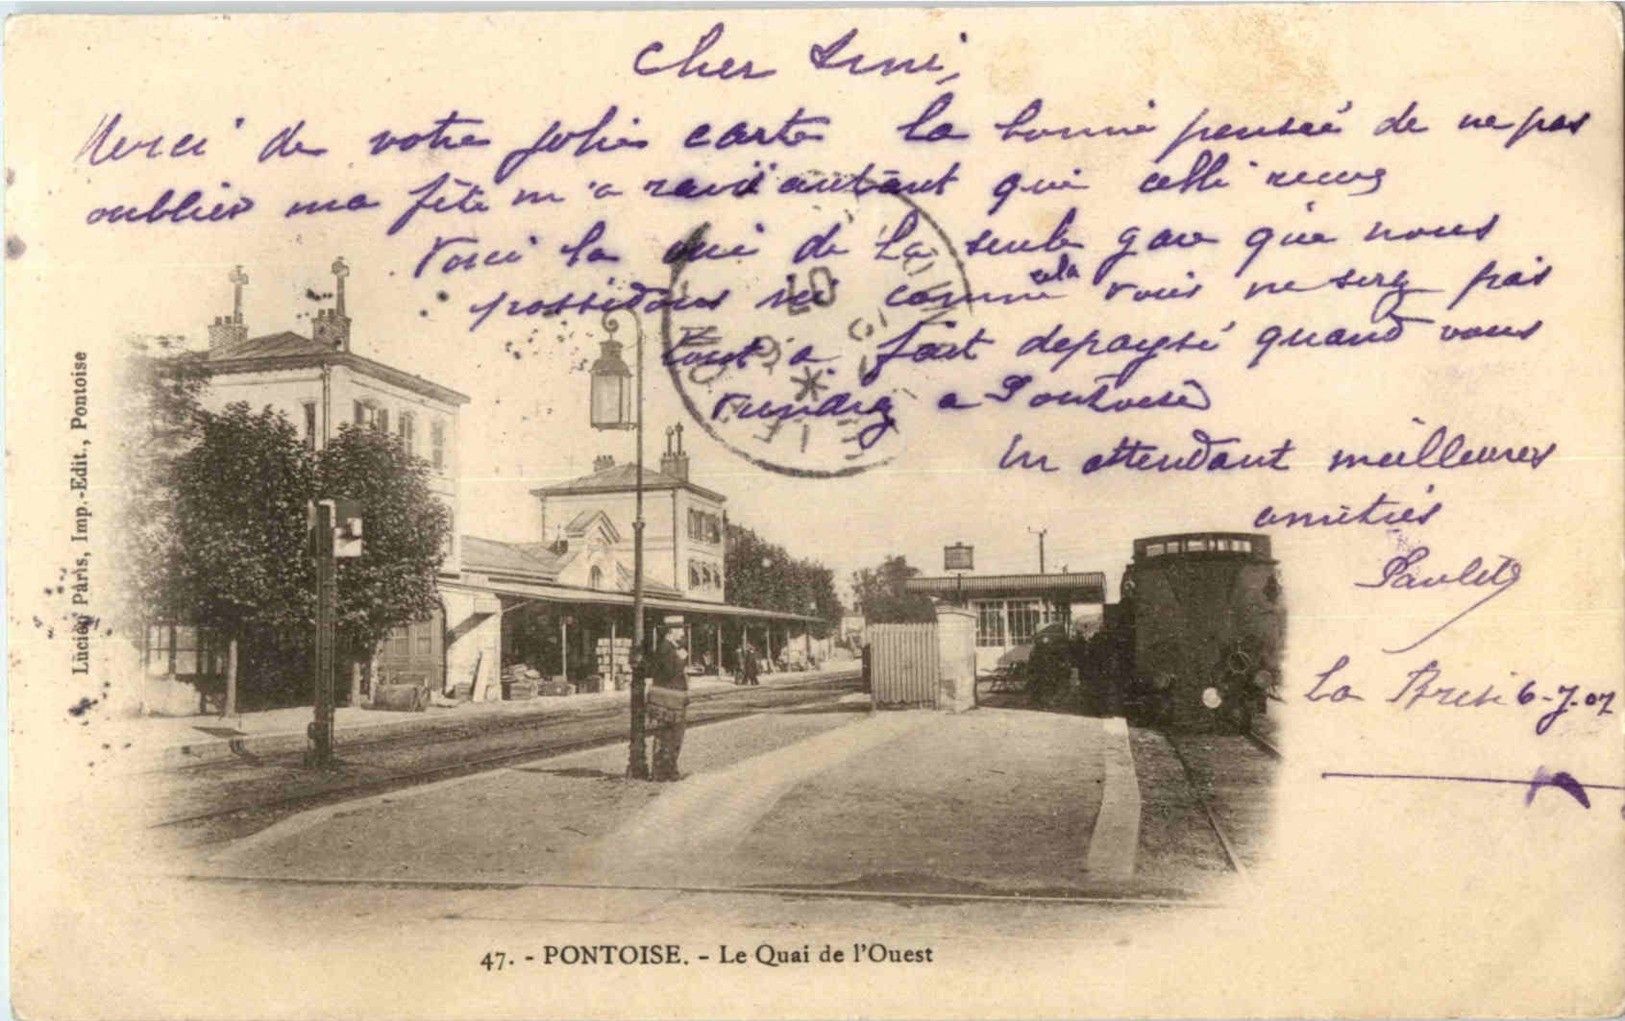 Cher
Merci de votre jolie carte la bonne pensée de ne pas
oublier ma fête m'a ravie autant que celle
Voici la vue de la seule gare que nous
possédons comme cela vous ne serez pas
tout a fait depaysé quand vous
viendrez a Pontoise
En attendant meilleures
amitiés
Paulette
La 6-7-07
Lucien Paris, Imp.-Edit., Pontoise
47. - PONTOISE. - Le Quai de l'Ouest